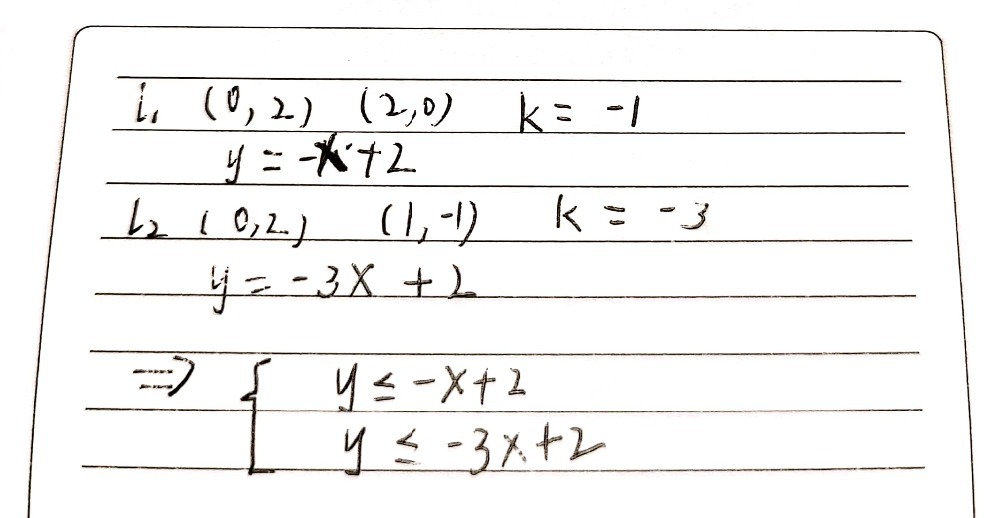 l₁ (0, 2) (2,0) k = -1
y = -x+2
l₂ (0,2) (1,-1) k = -3
y = -3x + 2
⇒ { y ≤ -x+2
y ≤ -3x+2